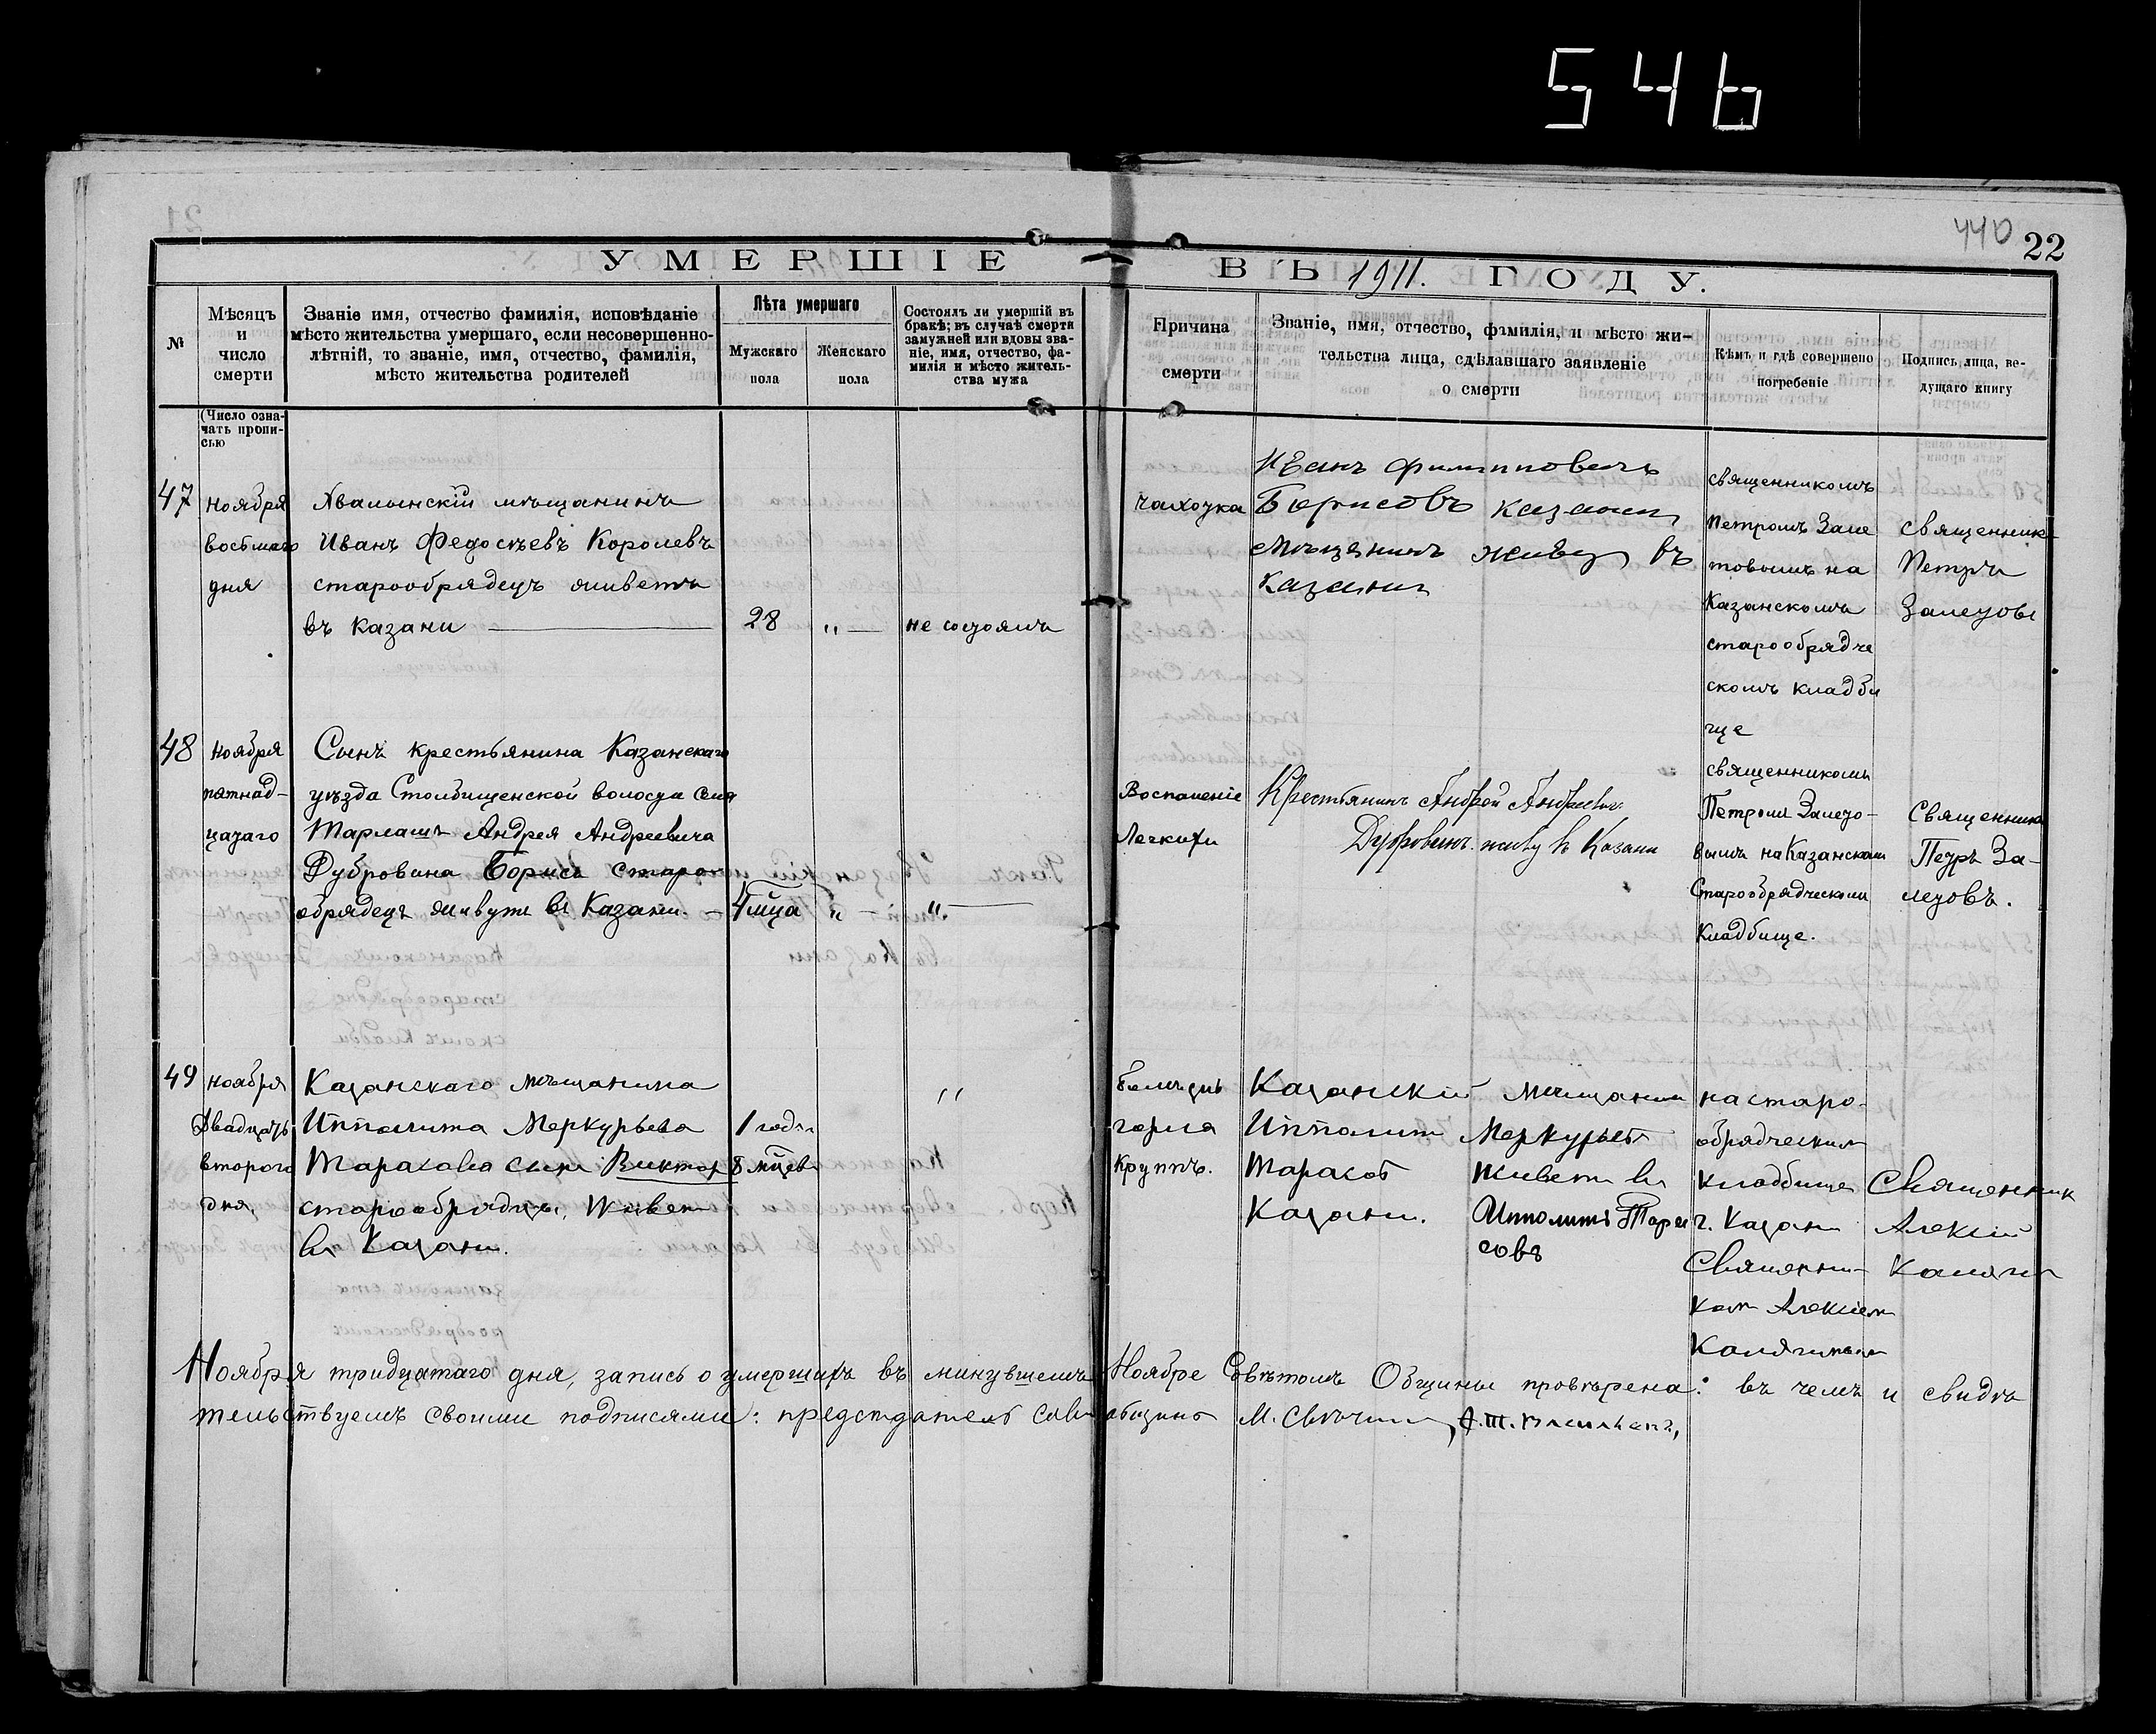 546
440
22
УМЕРШІЕ ВЪ 1911. ГОДУ.
№
Мѣсяцъ
и
число
смерти
Званіе имя, отчество фамилія, исповѣданіе
мѣсто жительства умершаго, если несовершенно-
лѣтній, то званіе, имя, отчество, фамилія,
мѣсто жительства родителей
Лѣта умершаго
Мужскаго
пола
Женскаго
пола
Состоялъ ли умершій въ
бракѣ; въ случаѣ смерти
замужней или вдовы зва-
ніе, имя, отчество, фа-
милія и мѣсто житель-
ства мужа
Причина
смерти
Званіе, имя, отчество, фамилія, и мѣсто жи-
тельства лица, сдѣлавшаго заявленіе
о смерти
Кѣмъ и гдѣ совершено
погребеніе
Подпись лица, ве-
дущаго книгу
(Число озна-
чать пропи-
сью
47
ноября
восьмаго
дня
Хвалынскій мѣщанинъ
Иванъ Федосѣевъ Королевъ
старообрядецъ живетъ
въ Казани
28
„ —
не состоялъ
чахотка
Иванъ Филипповичъ
Борисовъ казанск
мѣщанинъ живу въ
Казани
священникомъ
Петромъ Зале
товымъ на
Казанскомъ
старообрядче
скомъ кладби
ще
священникъ
Петръ
Залетовъ
48
ноября
пятнад-
цатаго
Сынъ крестьянина Казанскаго
уѣзда Столбищенской волости села
Тарлашъ Андрея Андреевича
Дубровина Борисъ старо
обрядецъ живутъ въ Казани. —
4 мца
„ —
„.
Воспаленіе
Легкихъ
Крестьянинъ Андрей Андреевъ
Дубровинъ. живу въ Казани
священникомъ
Петромъ Залето-
вымъ на Казанскомъ
Старообрядческомъ
Кладбище.
Священникъ
Петръ За-
летовъ.
49
ноября
Двадцать
второго
дня
Казанскаго мѣщанина
Ипполита Меркурьева
Тарасова сынъ Викторъ
старообрядцы, Живет
въ Казани.
1 годъ
8 мцевъ
„
болѣзнь
горла
Круппъ.
Казанскій мѣщанин
Ипполит Меркурьев
Тарасов Живет въ
Казани. Ипполитъ Тара
совъ
на старо-
обрядческим
кладбище
г. Казани
Священни-
ком Алексием
Калягиным
Священник
Алексій
Калягин
Ноября тридцатаго дня, запись о умершихъ въ минувшемъ Ноябре Совѣтомъ Общины провѣрена: въ чемъ и свидѣ
тельствуемъ своими подписями: председатель сов общины М. Свѣчин,